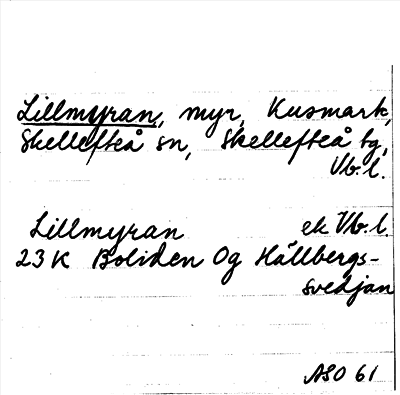 Lillmyran, myr, Kusmark,
Skellefteå sn, Skellefteå tg,
Vb. l.
Lillmyran ek Vb. l.
23 K Boliden Og Hällbergs-
svedjan
ASO 61